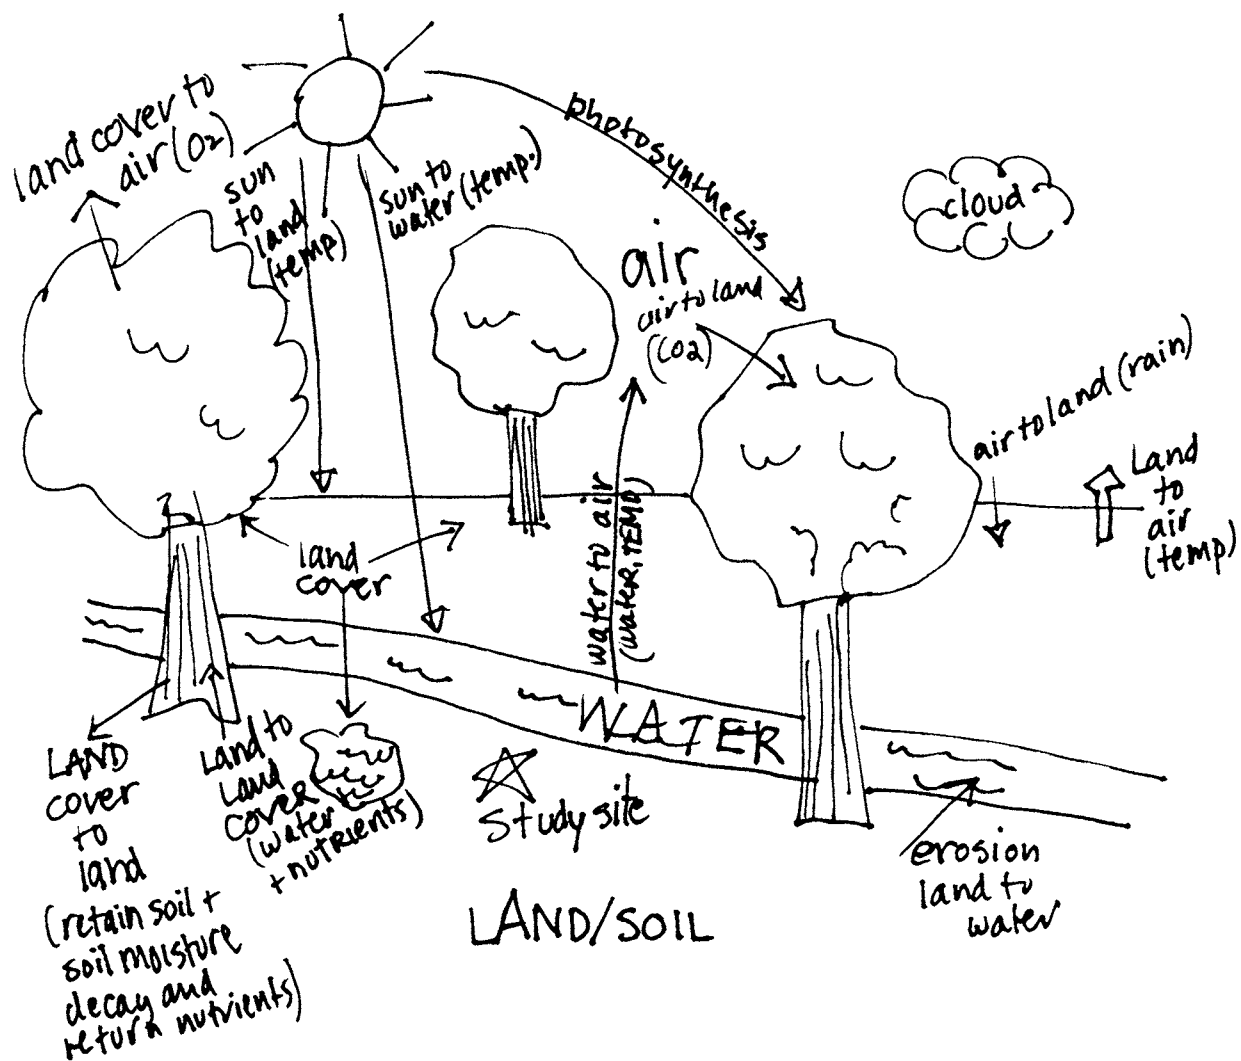 land cover to
air (O2)
sun
to
land
(temp)
sun to
water (temp.)
photosynthesis
cloud
air
air to land
(CO2)
air to land (rain)
Land
to
air
(temp)
land
cover
water to air
(water, TEMP)
WATER
LAND
cover
to
land
(retain soil +
soil moisture
decay and
return nutrients)
Land to
Land
COVER
(water
+ nutrients)
Study site
erosion
land to
water
LAND/SOIL